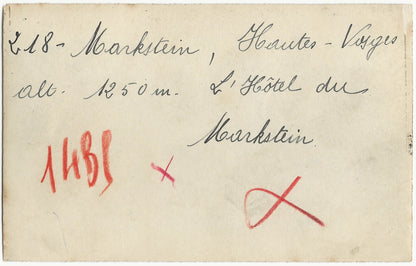 218 - Markstein, Hautes-Vosges
alt. 1250 m. L'Hôtel du
Markstein.